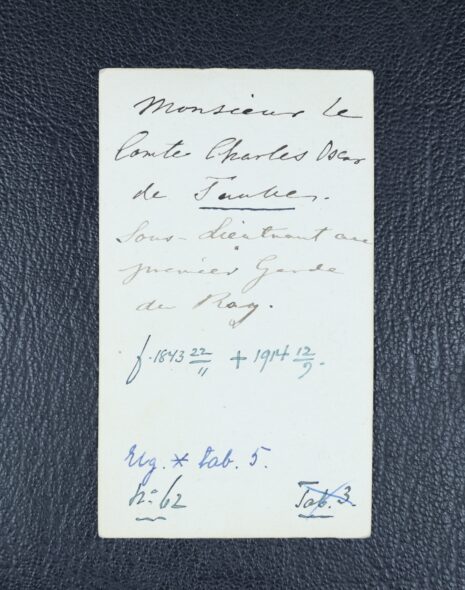 Monsieur le
Comte Charles Oscar
de Taube.
Sous-Lieutnant au
premier Garde
du Roy.
f. 1843 22/11 + 1914 12/9.
Elg. * Tab. 5.
No 62
Tab. 3.